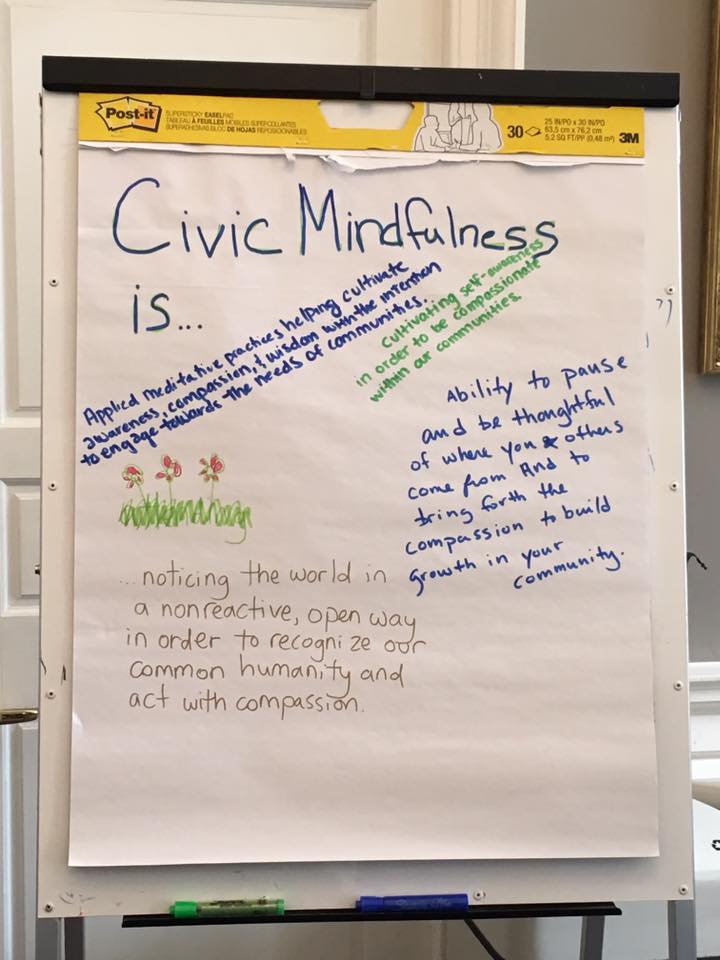 Post-it
SUPERSTICKY EASEL PAD
TABLEAU À FEUILLES MOBILES SUPERCOLLANTES
SUPERADHESIVAS BLOC DE HOJAS REPOSICIONABLES
30
25 IN/PO x 30 IN/PO
63,5 cm x 76,2 cm
5.2 SQ FT/PP² (0,48 m²)
3M
Civic Mindfulness
is...
Applied meditative practices helping cultivate
awareness, compassion, & wisdom with the intention
to engage towards the needs of communities.
cultivating self-awareness
in order to be compassionate
within our communities
Ability to pause
and be thoughtful
of where you & others
come from And to
bring forth the
compassion to build
growth in your
community.
...noticing the world in
a nonreactive, open way
in order to recognize our
common humanity and
act with compassion.